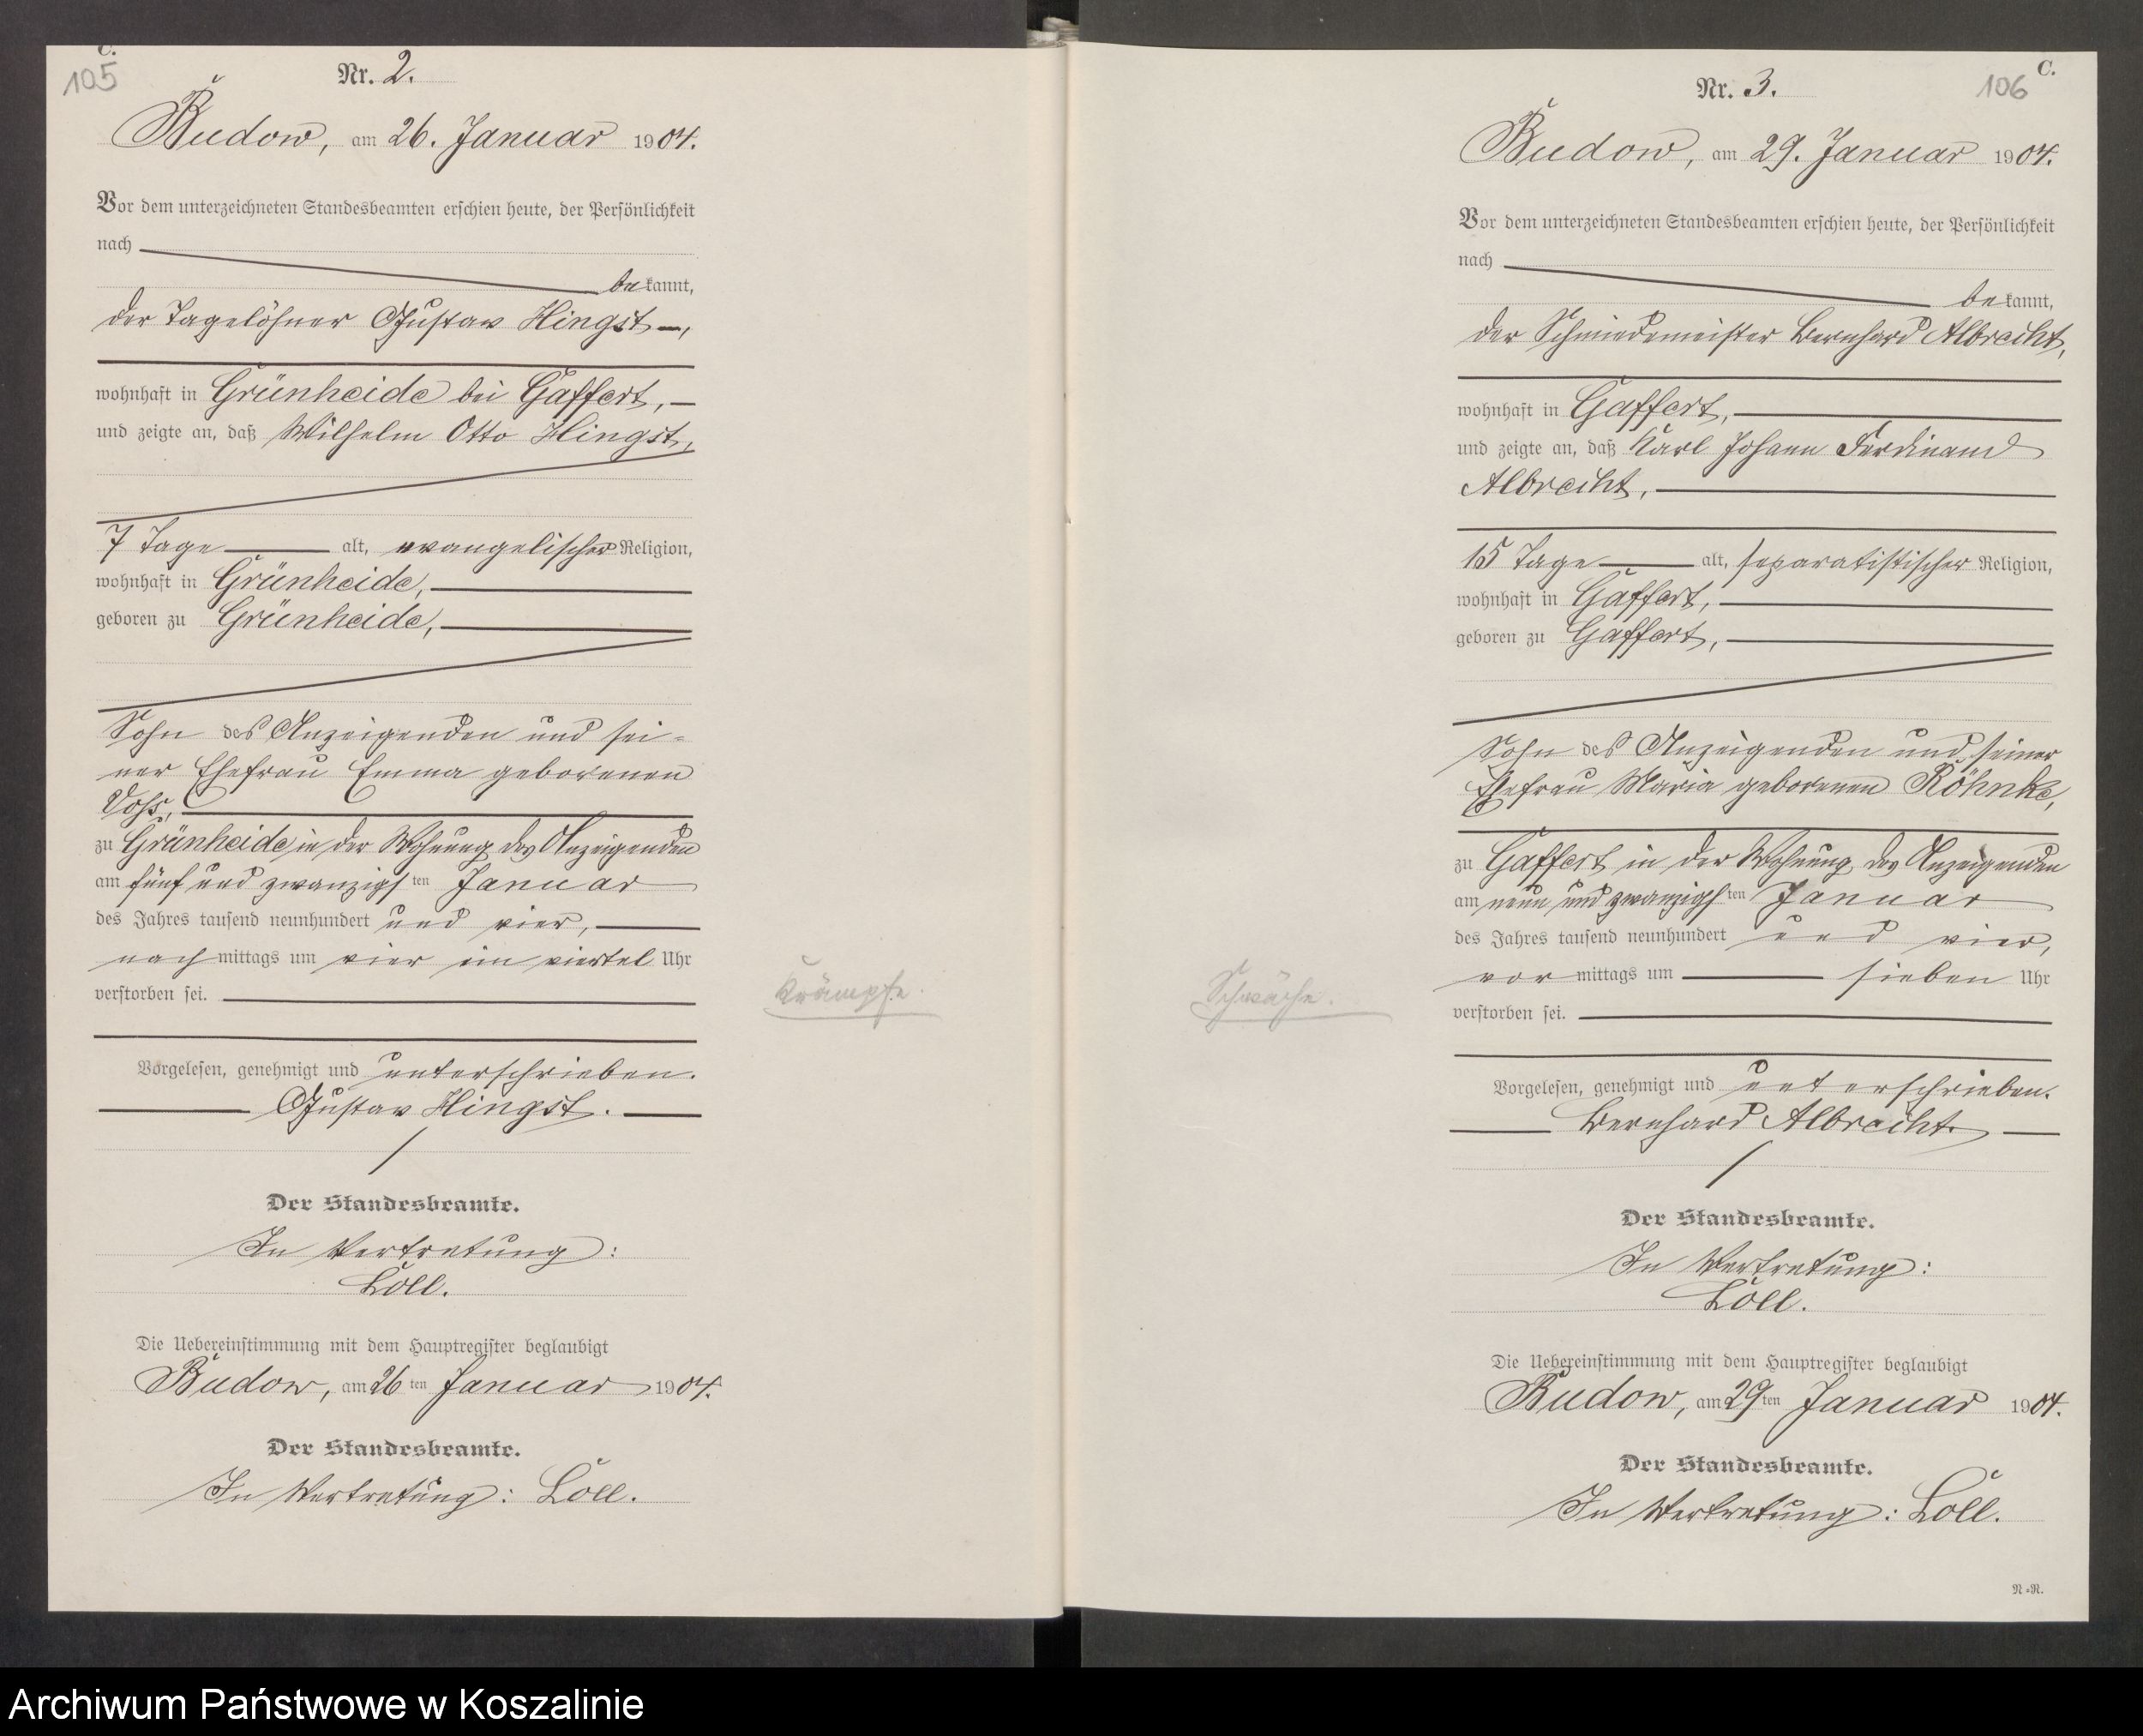 C.
105
Nr. 2.
Budow, am 26. Januar 1904.
Vor dem unterzeichneten Standesbeamten erschien heute, der Persönlichkeit
nach
bekannt,
der Tagelöhner Gustav Hingst,
wohnhaft in Grünheide bei Gaffert,
und zeigte an, daß Wilhelm Otto Hingst,
7 Tage alt, evangelischer Religion,
wohnhaft in Grünheide,
geboren zu Grünheide,
Sohn des Anzeigenden und sei-
ner Ehefrau Emma geborenen
Voß,
zu Grünheide in der Wohnung des Anzeigenden
am fünf und zwanzigsten Januar
des Jahres tausend neunhundert und vier,
nachmittags um vier ein viertel Uhr
verstorben sei.
Krämpfe.
Vorgelesen, genehmigt und unterschrieben.
Gustav Hingst.
Der Standesbeamte.
In Vertretung:
Löll.
Die Uebereinstimmung mit dem Hauptregister beglaubigt
Budow, am 26ten Januar 1904.
Der Standesbeamte.
In Vertretung: Löll.
C.
106
Nr. 3.
Budow, am 29. Januar 1904.
Vor dem unterzeichneten Standesbeamten erschien heute, der Persönlichkeit
nach
bekannt,
der Schmiedemeister Bernhard Albrecht,
wohnhaft in Gaffert,
und zeigte an, daß Karl Johann Ferdinand
Albrecht,
15 Tage alt, separatistischer Religion,
wohnhaft in Gaffert,
geboren zu Gaffert,
Sohn des Anzeigenden und seiner
Ehefrau Maria geborenen Röhnke,
zu Gaffert in der Wohnung des Anzeigenden
am neun und zwanzigsten Januar
des Jahres tausend neunhundert und vier,
vormittags um sieben Uhr
verstorben sei.
Schwäche.
Vorgelesen, genehmigt und unterschrieben.
Bernhard Albrecht.
Der Standesbeamte.
In Vertretung:
Löll.
Die Uebereinstimmung mit dem Hauptregister beglaubigt
Budow, am 29ten Januar 1904.
Der Standesbeamte.
In Vertretung: Löll.
N=R.
Archiwum Państwowe w Koszalinie